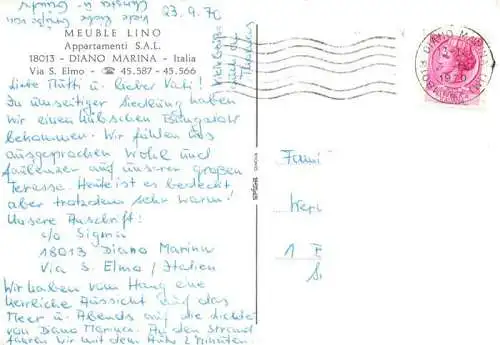 viele liebe Grüße von
23.9.70
MEUBLE LINO
Appartamenti S.A.L.
18013 - DIANO MARINA - Italia
Via S. Elmo - ☎ 45.587 - 45.566
Liebe Mutti u. lieber Vati!
In umseitiger Siedlung haben
wir einen hübschen Bungalow
bekommen. Wir fühlen uns
ausgesprochen wohl und
faulenzen auf unserer großen
Terasse. Heute ist es bedeckt
aber trotzdem sehr warm!
Unsere Anschrift:
c/o Sigma
18013 Diano Marina
Via S. Elmo / Italien
Wir haben vom Hang eine
herrliche Aussicht auf das
Meer u. Abends auf die Lichter
von Diano Marina. An den Strand
fahren wir mit dem Auto 2 Minuten.
18013 DIANO MARINA
1970
Fami
1